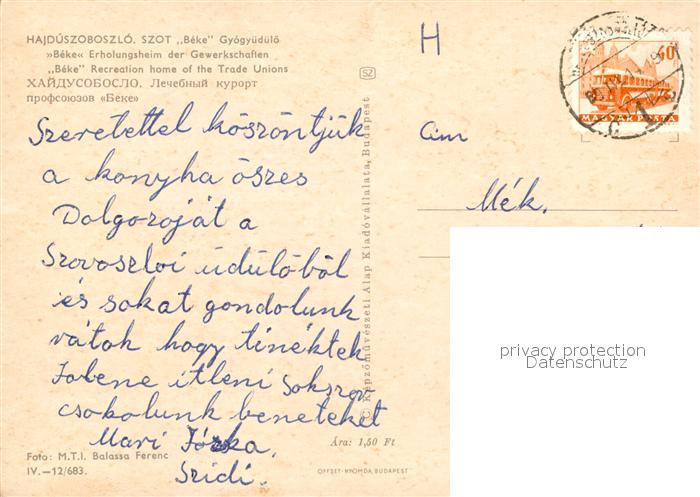 HAJDÚSZOBOSZLÓ. SZOT „Béke" Gyógyüdülő
»Béke« Erholungsheim der Gewerkschaften
„Béke" Recreation home of the Trade Unions
ХАЙДУСОБОСЛО. Лечебный курорт
профсоюзов «Беке»
Szeretettel köszöntjük
a konyha öszes
Dolgozóját a
Szovoszloi üdülőből
és sokat gondolunk
rátok hogy tinéktek
Jobene itleni Sokszor
csokolunk beneteket
Mari Józka,
Szidi.
Foto: M.T.I. Balassa Ferenc
IV.—12/683.
SZ
© Képzőművészeti Alap Kiadóvállalata, Budapest
Ára: 1,50 Ft
OFFSET-NYOMDA, BUDAPEST
H
40
MAGYAR POSTA
Cim
Mék.
privacy protection
Datenschutz